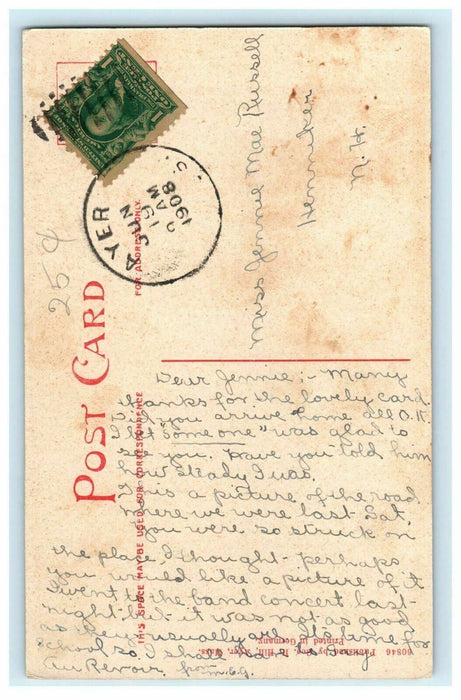 POST CARD
THIS SPACE MAY BE USED FOR CORRESPONDENCE
FOR ADDRESS ONLY.
1
AYER
JUN
19
2 AM
1908
25¢
Miss Jennie Mae Russell
Henniker
N. H.
Dear Jennie; - Many
thanks for the lovely card.
Did you arrive home all O.K.
I bet "some one" was glad to
see you. Have you told him
how steady I was.
This is a picture of the road
where we were last Sat.
you were so struck on
the place, I thought perhaps
you would like a picture of it
I went to the band concert last
night but it was not as good
as they usually are. Time for
school so I shall have to say
Au Revoir. from
60846 Published by Geo. H. Hill, Ayer, Mass.
Printed in Germany.